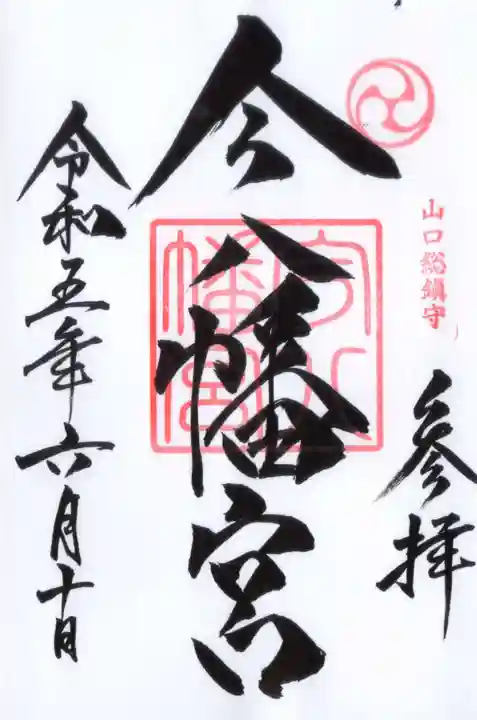 山口総鎮守
参拝
今八幡宮
今八幡宮
令和五年六月十日